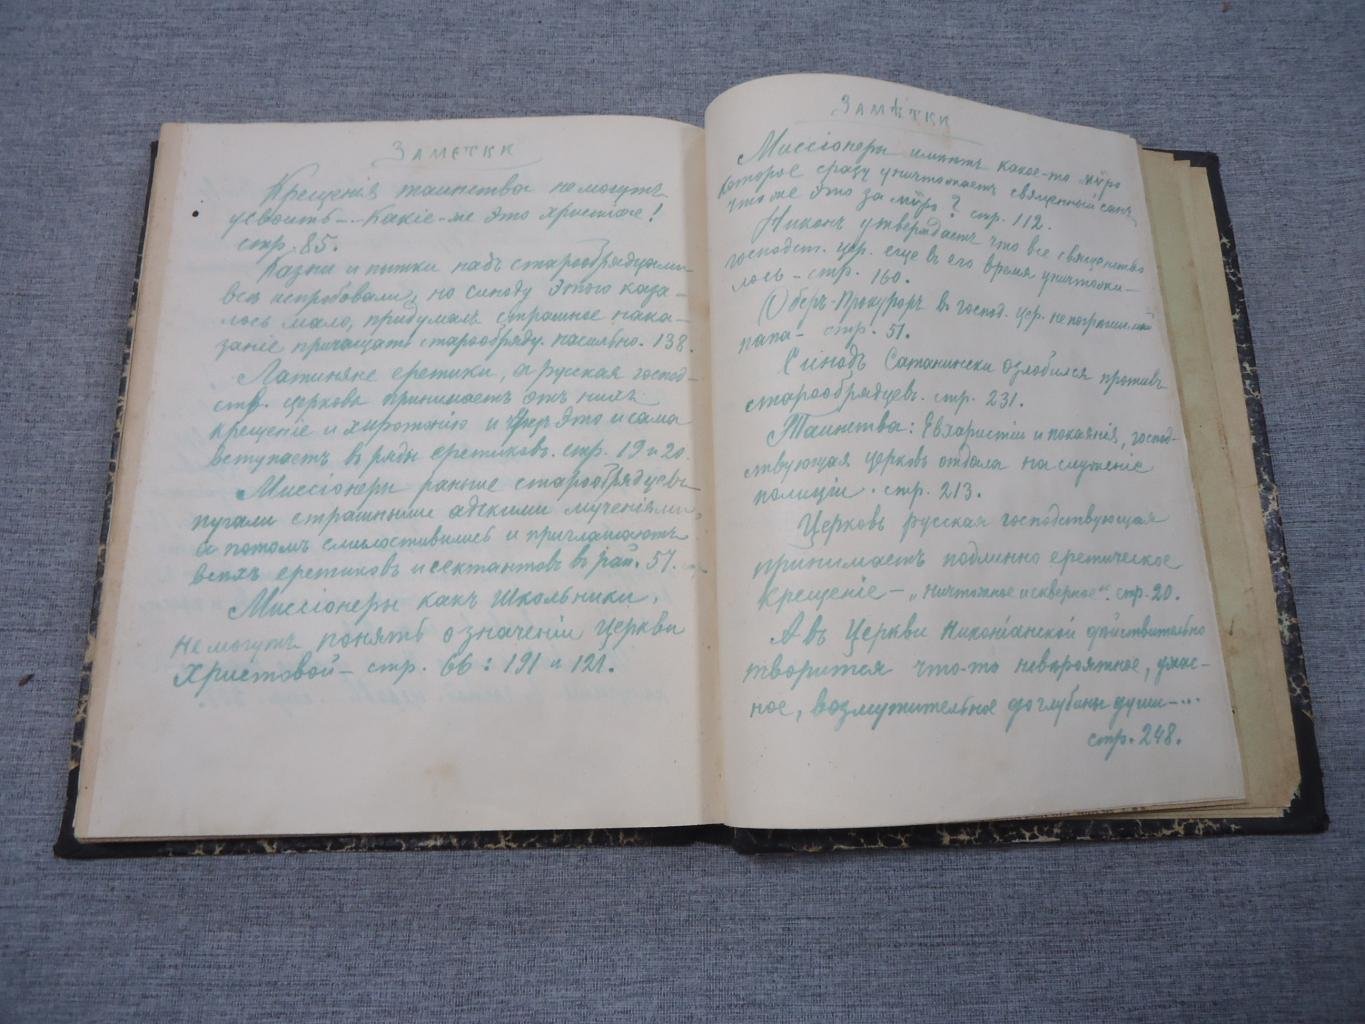 Заметки
Крещенія таинства не могутъ
усвоить-... Какіе-же это христіане!
стр. 85.
Казни и пытки надъ старообрядцами
все испробовали, но синоду этого каза-
лось мало, придумалъ страшное нака-
заніе причащать старообряду. насильно. 138.
Латиняне еретики, а русская господ-
ств. церковь принимаетъ отъ нихъ
крещеніе и хиротонію и это и сама
вступаетъ въ ряды еретиковъ. стр. 19 и 20.
Миссіонеры раньше старообрядцевъ
пугали страшными адскими мученіями,
а потомъ смилостивились и приглашаютъ
всехъ еретиковъ и сектантовъ в рай. 57.
Миссіонеры какъ школьники,
не могутъ понять о значеніи Церкви
Христовой - стр. 66: 191 и 121.
Замѣтки
Миссіонеры имеютъ какое-то мѵро
которое сразу уничтожаетъ священный санъ
что же это за мѵро? стр. 112.
Никонъ утверждаетъ что все священство
господст. цер. еще в его время уничтожи-
лось - стр. 160.
Оберъ-Прокуроръ в господ. цер. непогрешимый
папа - стр. 51.
Синодъ Сатанински озлобился противъ
старообрядцевъ. стр. 231.
Таинства: Евхаристіи и покаянія, господ-
ствующая церковь отдала на служеніе
полиціи. стр. 213.
Церковь русская господствующая
принимаетъ подлинно еретическое
крещеніе - „ничтожное и скверное". стр. 20.
А въ Церкви Никоніанской действительно
творится что-то невероятное, ужас-
ное, возмутительное до глубины души-...
стр. 248.